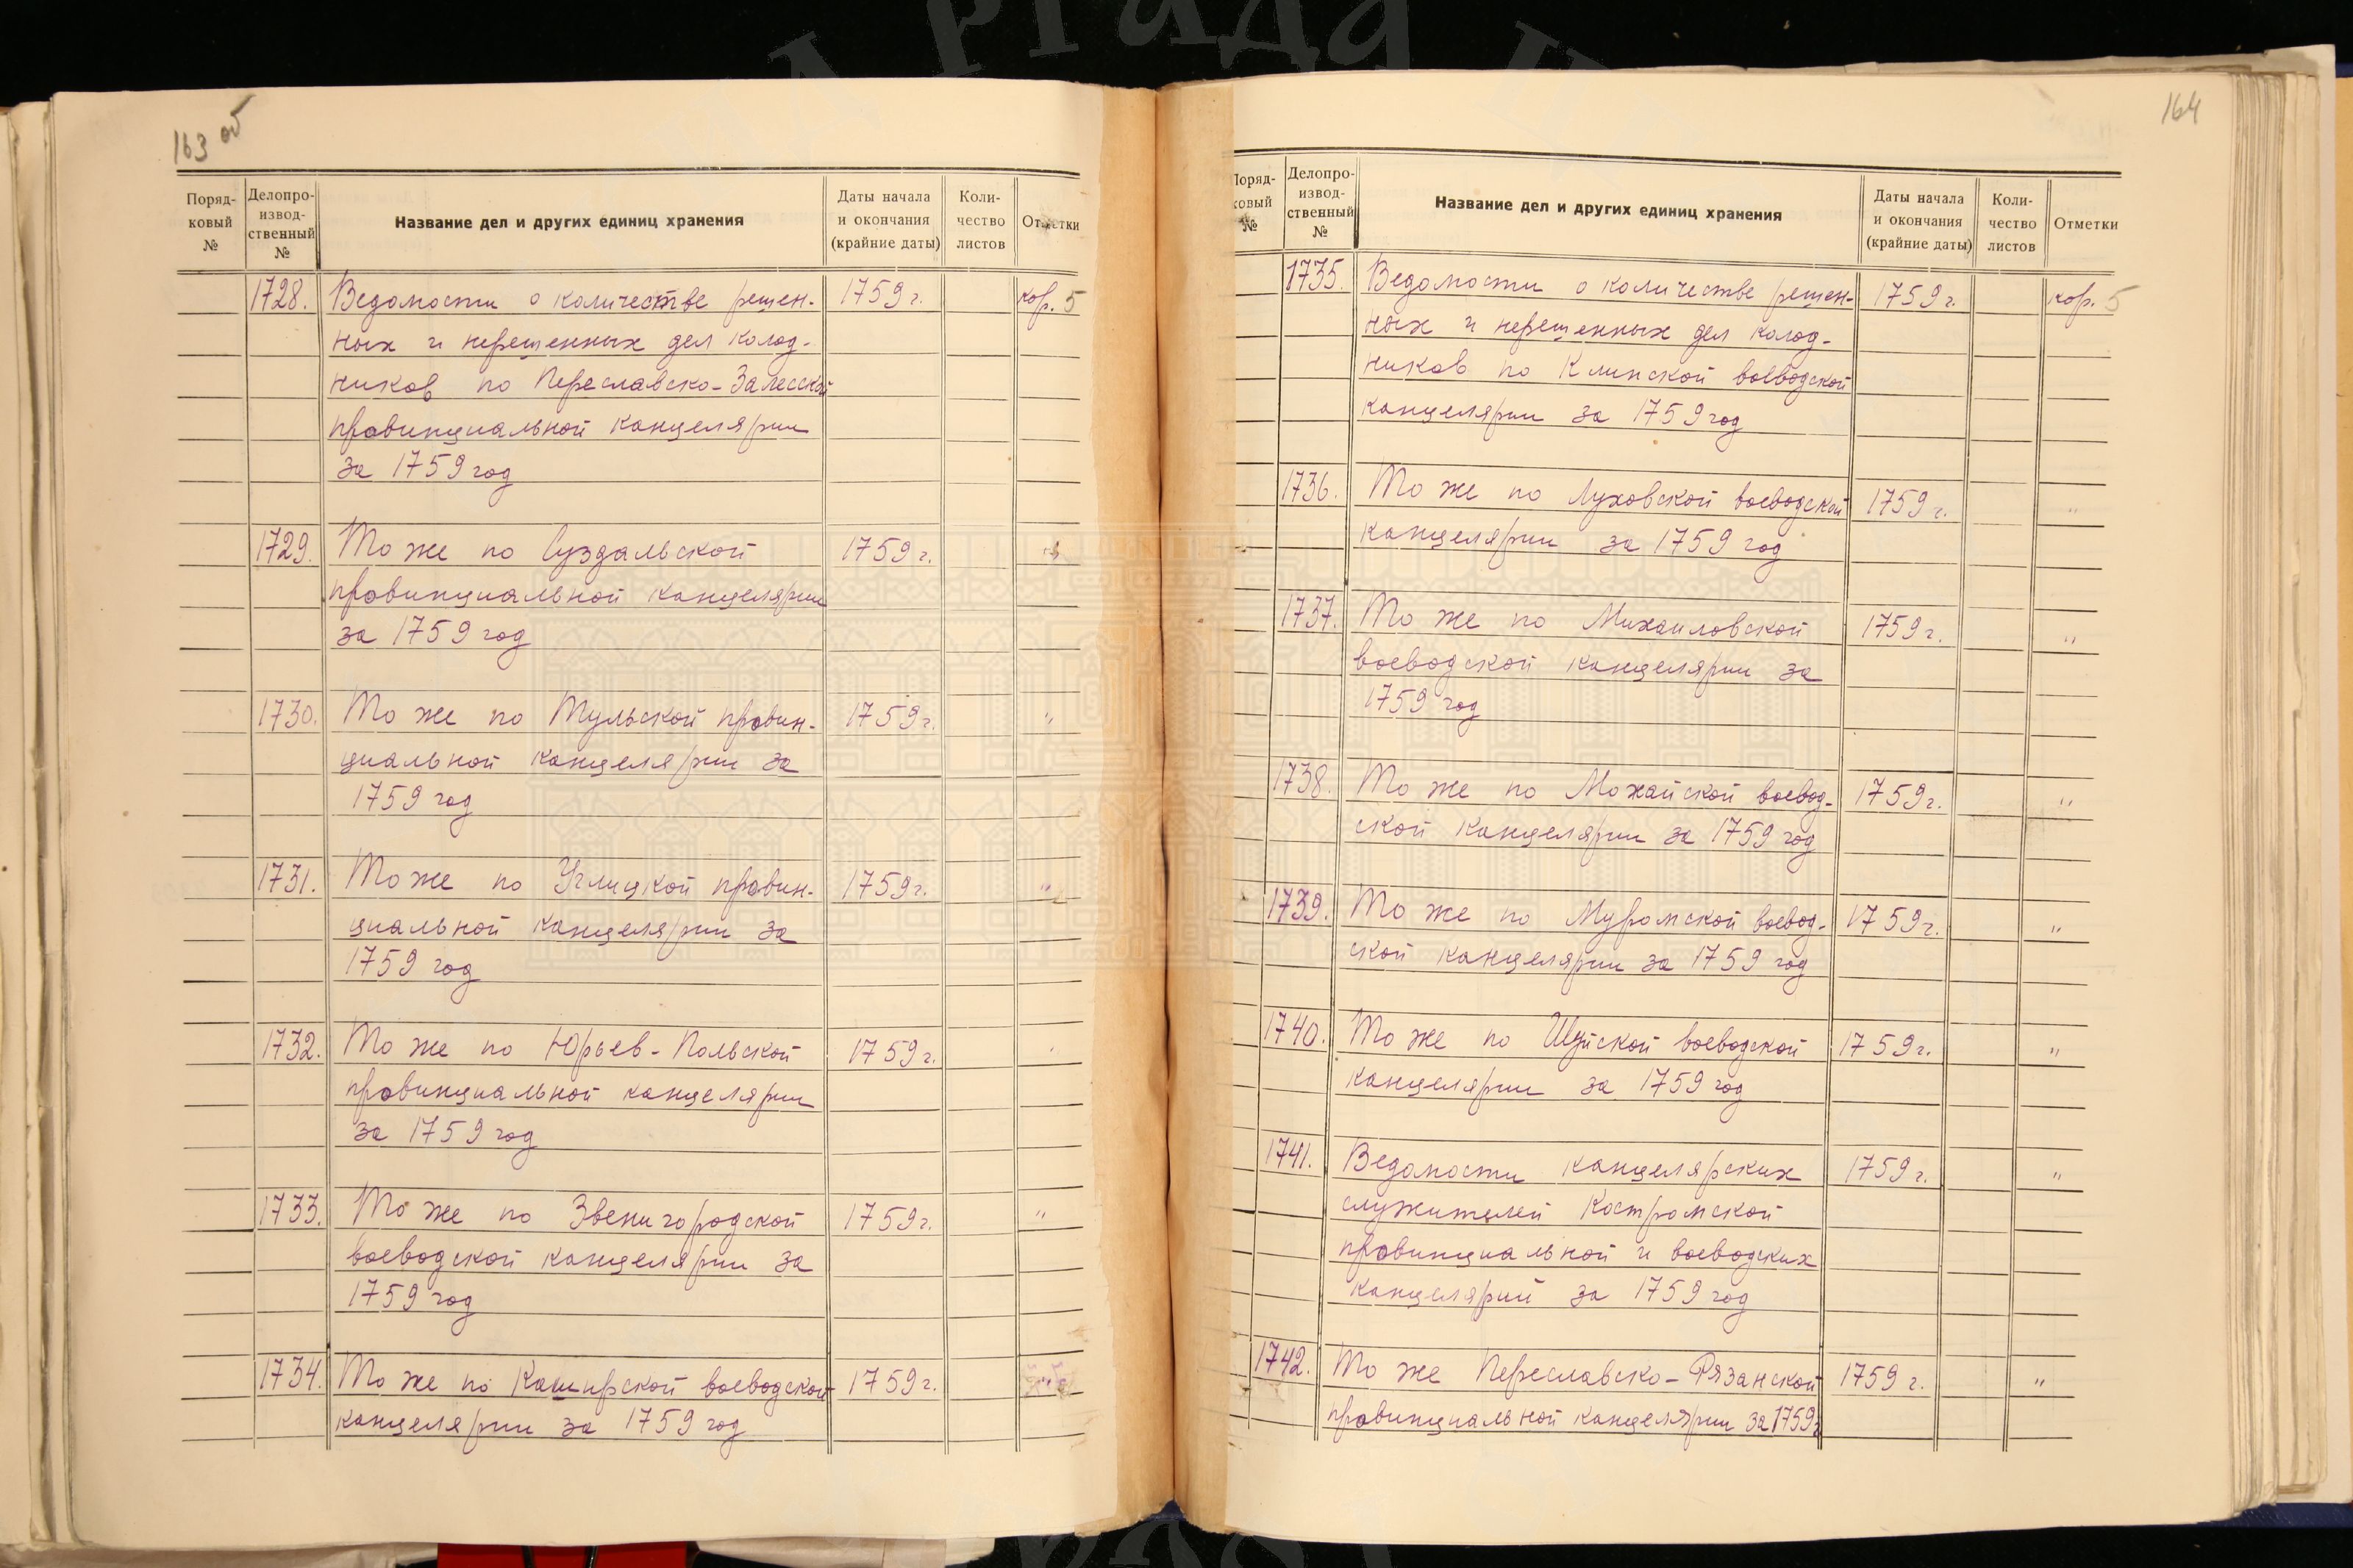 163 об
Поряд-
ковый
№
Делопро-
извод-
ственный
№
Название дел и других единиц хранения
Даты начала
и окончания
(крайние даты)
Коли-
чество
листов
Отметки
1728. Ведомости о количестве решен- 1759 г. кор. 5
ных и нерешенных дел колод-
ников по Переславско-Залесской
провинциальной канцелярии
за 1759 год
1729. То же по Суздальской 1759 г. "
провинциальной канцелярии
за 1759 год
1730. То же по Тульской провин- 1759 г. "
циальной канцелярии за
1759 год
1731. То же по Углицкой провин- 1759 г. "
циальной канцелярии за
1759 год
1732. То же по Юрьев-Польской 1759 г.
провинциальной канцелярии
за 1759 год
1733. То же по Звенигородской 1759 г. "
воеводской канцелярии за
1759 год
1734. То же по Каширской воеводской 1759 г. "
канцелярии за 1759 год
164
Поряд-
ковый
№
Делопро-
извод-
ственный
№
Название дел и других единиц хранения
Даты начала
и окончания
(крайние даты)
Коли-
чество
листов
Отметки
1735. Ведомости о количестве решен- 1759 г. кор. 5
ных и нерешенных дел колод-
ников по Клинской воеводской
канцелярии за 1759 год
1736. То же по Луховской воеводской 1759 г. "
канцелярии за 1759 год
1737. То же по Михаиловской 1759 г. "
воеводской канцелярии за
1759 год
1738. То же по Можайской воевод- 1759 г. "
ской канцелярии за 1759 год
1739. То же по Муромской воевод- 1759 г. "
ской канцелярии за 1759 год
1740. То же по Шуйской воеводской 1759 г. "
канцелярии за 1759 год
1741. Ведомости канцелярских 1759 г. "
служителей Костромской
провинциальной и воеводских
канцелярий за 1759 год
1742. То же Переславско-Рязанской 1759 г. "
провинциальной канцелярии за 1759 г.